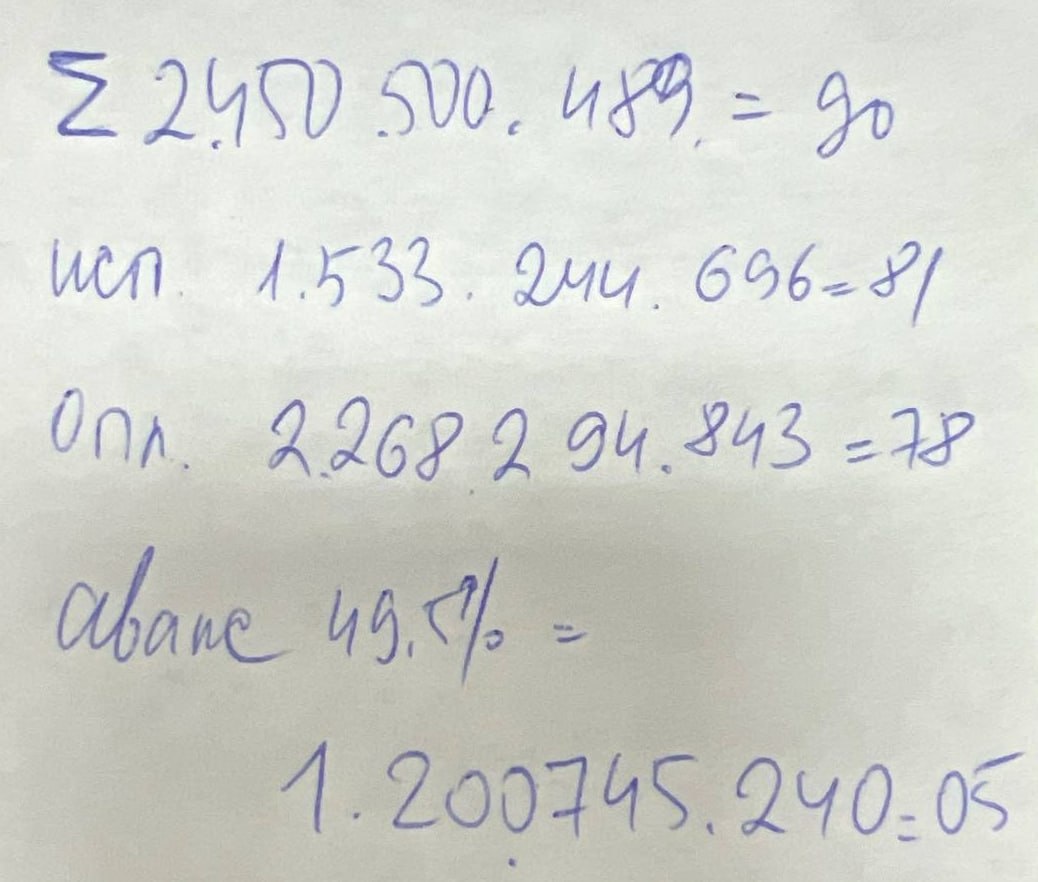 Σ 2.450.500.489.=90
исп. 1.533.244.696=81
Опл. 2.268.294.843=78
аванс 49.5%=
1.200.745.240=05